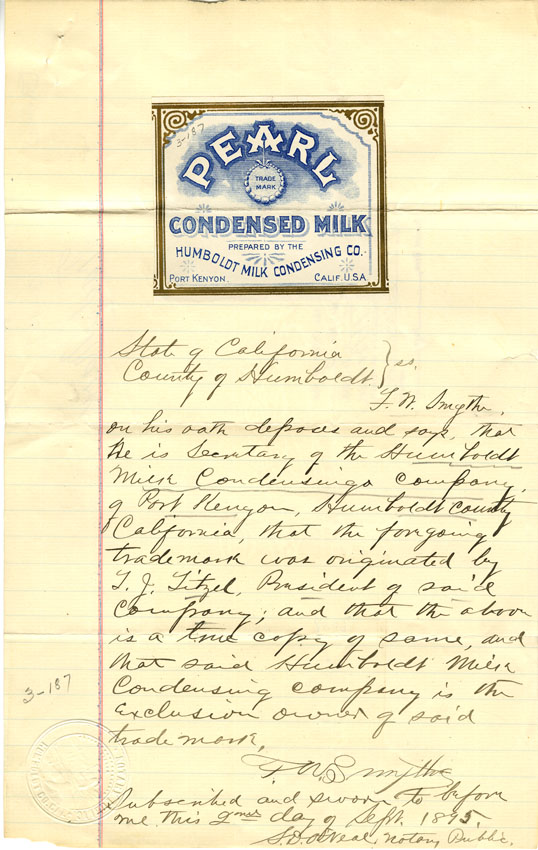 3-187
PEARL
TRADE
MARK
CONDENSED MILK
PREPARED BY THE
HUMBOLDT MILK CONDENSING CO.
PORT KENYON. CALIF. U.S.A.
State of California
County of Humboldt } ss.
F. W. Smythe,
on his oath deposes and says, that
he is Secretary of the Humboldt
Milk Condensing company,
of Port Kenyon, Humboldt County
California, that the foregoing
trademark was originated by
President of said
company; and that the above
is a true copy of same, and
that said Humboldt Milk
Condensing company is the
exclusion owner of said
trade mark.
3-187
F W Smythe
Subscribed and sworn to before
me this 2nd day of Sept. 1895.
Notary Public.